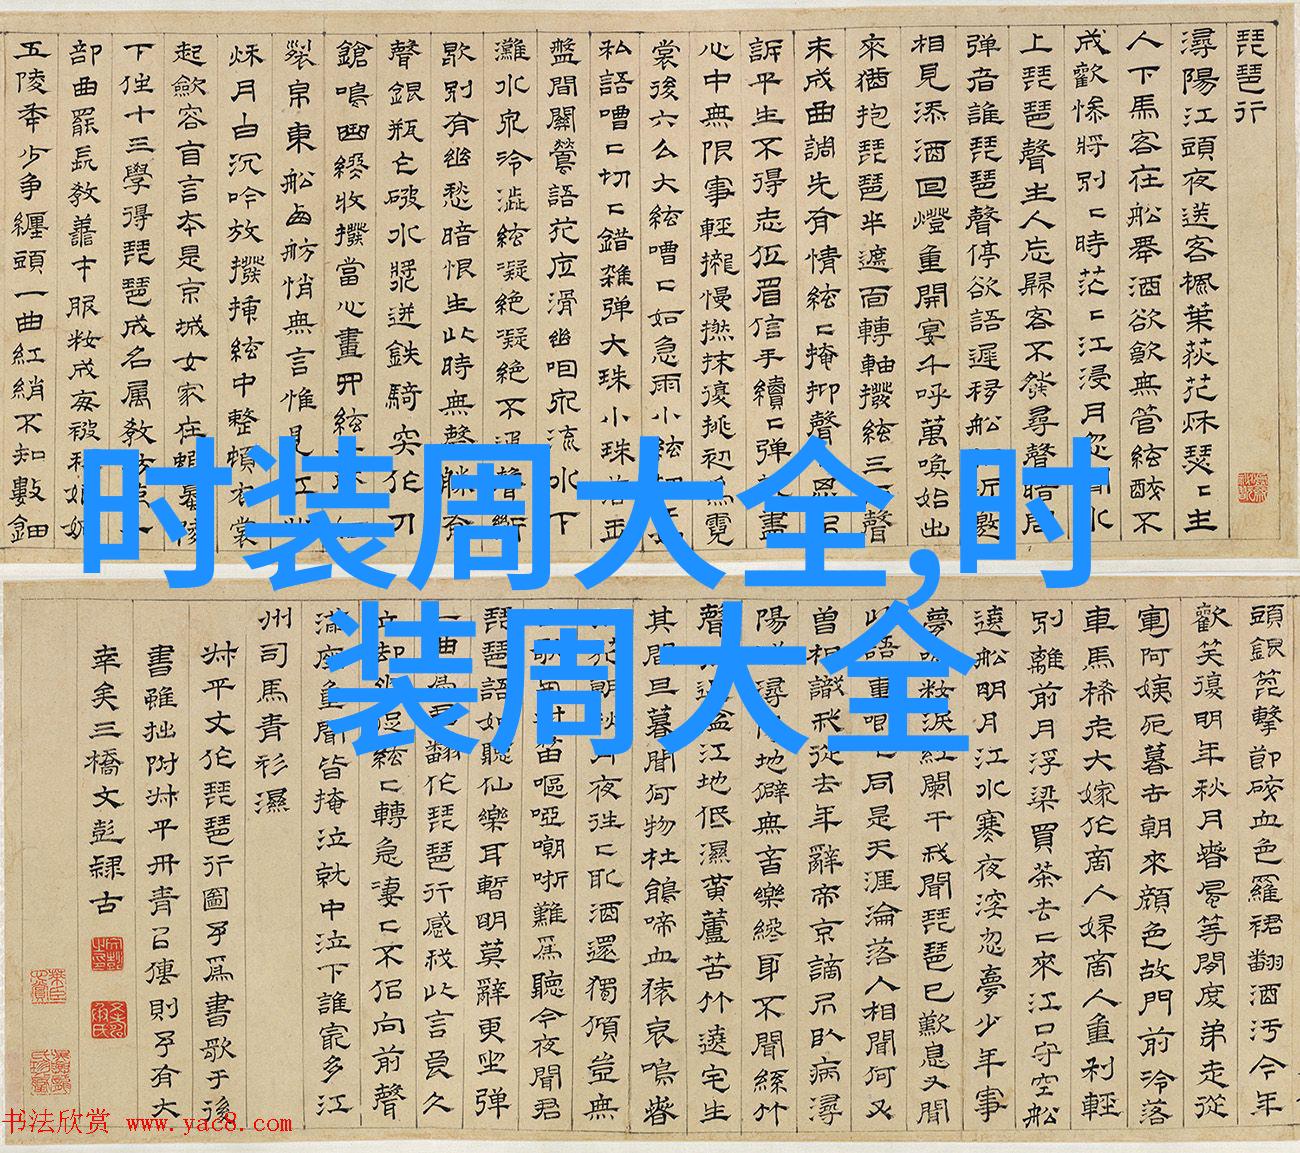 琵琶行
潯陽江頭夜送客楓葉荻花秋瑟〻主
人下馬客在船舉酒欲飲無管絃醉不
成歡慘將別〻時茫〻江浸月忽聞水
上琵琶聲主人忘歸客不發尋聲暗問
彈者誰琵琶聲停欲語遲移船近邀
相見添酒回燈重開宴千呼萬喚始出
來猶抱琵琶半遮面轉軸撥絃三聲
未成曲調先有情絃〻掩抑聲思似
訴平生不得志低眉信手續〻彈盡
心中無限事輕攏慢撚抹復挑初為霓
裳後六么大絃嘈〻如急雨小絃
私語嘈〻切〻錯雜彈大珠小珠落玉
盤間關鶯語花底滑幽咽泉流水下
灘水泉冷澁絃凝絕凝絕不通聲漸
歇別有幽愁暗恨生此時無聲勝有
聲銀瓶乍破水漿迸鉄騎突出刀
鎗鳴曲終收撥當心畫四絃
裂帛東船西舫悄無言惟見江
秋月白沉吟放撥揷絃中整頓衣裳
起斂容自言本是京城女家在蝦蟇陵
下住十三學得琵琶成名屬教坊
部曲罷長教善才服粧成每被秋娘妒
五陵年少爭纏頭一曲紅綃不知數鈿
时装周大全,时
装周大全
頭銀篦擊節碎血色羅裙翻酒污今年
歡笑復明年秋月春風等閑度弟走從
軍阿姨死暮去朝來顏色故門前冷落
車馬稀老大嫁作商人婦商人重利輕
別離前月浮梁買茶去〻來江口守空船
遶船明月江水寒夜深忽夢少年事
夢啼粧淚紅闌干我聞琵琶已歎息又聞
此語重唧〻同是天涯淪落人相聞何必
曾相識我從去年辭帝京謫居臥病潯
陽潯陽地僻無音樂終歲不聞絲竹
聲近湓江地低濕黃蘆苦竹遶宅生
其間旦暮聞何物杜鵑啼血猿哀鳴春
江花朝秋月夜往〻取酒還獨傾豈無
山歌與村笛嘔啞嘲哳難為聽今夜聞君
琵琶語如聽仙樂耳暫明莫辭更坐彈
一曲為君翻作琵琶行感我此言良久
立却坐促絃〻轉急凄〻不似向前聲
滿座重聞皆掩泣就中泣下誰最多江
州司馬青衫濕
平丈作琵琶行圖予為書歌于後
書雖拙附平冊青以傳則予有大
幸矣三橋文彭隸古
书法欣赏 www.yac8.com